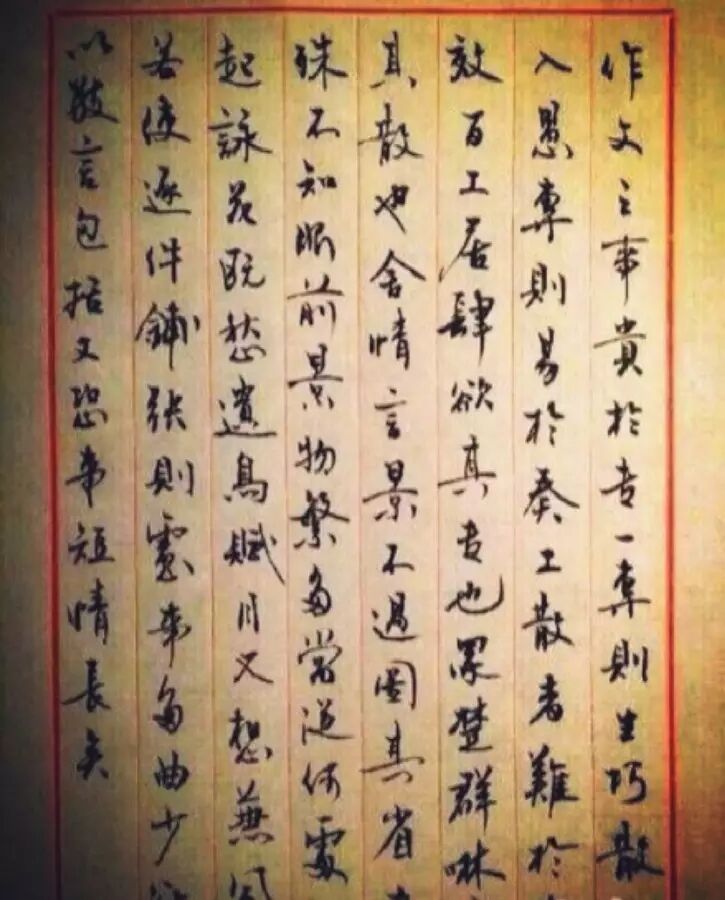 作文之事貴於專一專則生巧散
入愚專則易於奏工散者難於
效百工居肆欲其專也眾楚群咻
其散也舍情言景不過圖其省
殊不知眼前景物繁多當從何處
起詠花既愁遺鳥賦月又想兼風
若使逐件鋪張則慮事多曲少
以數言包括又恐事短情長矣